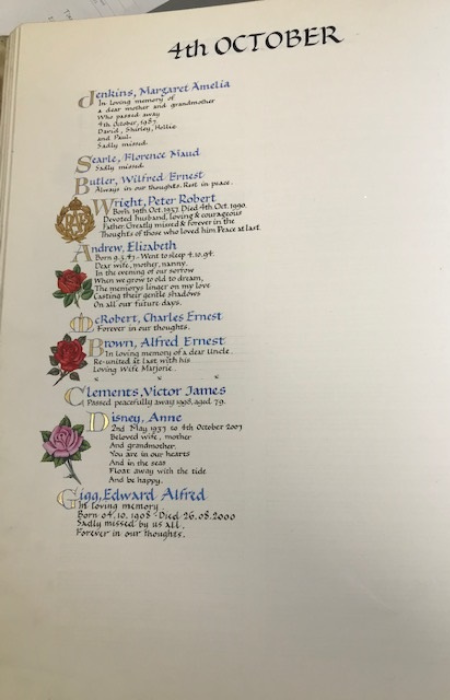 4th OCTOBER
Jenkins, Margaret Amelia
In loving memory of
a dear mother and grandmother
Who passed away
4th October, 1987
David, Shirley, Hollie
and Paul.
Sadly missed.
Searle, Florence Maud
Sadly missed.
Butler, Wilfred Ernest
Always in our thoughts. Rest in peace.
Wright, Peter Robert
Born 19th Oct. 1957. Died 4th Oct. 1990.
Devoted husband, loving & courageous
Father. Greatly missed & forever in the
Thoughts of those who loved him. Peace at last.
Andrew, Elizabeth
Born 9.3.47 - Went to sleep 4.10.94.
Dear wife, mother, nanny.
In the evening of our sorrow
When we grow to old to dream,
The memorys linger on my love
Casting their gentle shadows
On all our future days.
McRobert, Charles Ernest
Forever in our thoughts.
Brown, Alfred Ernest
In loving memory of a dear Uncle
Re-united at last with his
Loving Wife Marjorie.
Clements, Victor James
Passed peacefully away 1998, aged 79.
Disney, Anne
2nd May 1937 to 4th October 2007
Beloved wife, mother
And grandmother.
You are in our hearts
And in the seas
Float away with the tide
And be happy.
Gigg, Edward Alfred
In loving memory.
Born 04.10.1908 - Died 26.08.2000
Sadly missed by us all.
Forever in our thoughts.